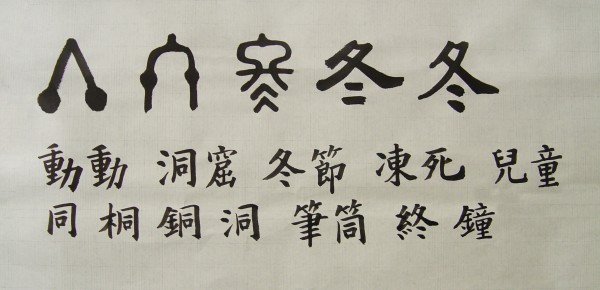 冬 冬
動動 洞窟 冬節 凍死 兒童
同 桐 銅 洞 筆筒 終 鐘